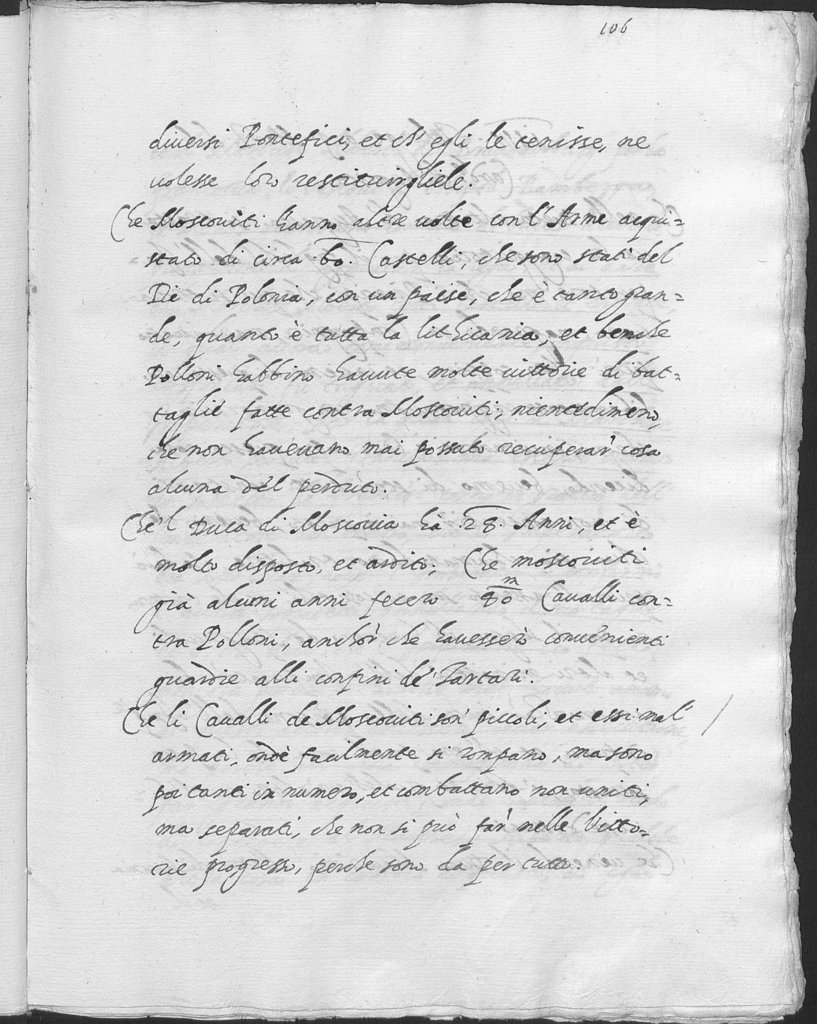 106
diversi Pontefici, et ch' egli le tenisse, ne
volesse loro restituirgliele.
Che Moscoviti hanno altre volte con l'Arme acqui=
stato di circa .60. Castelli, che sono stati del
Rè di Polonia, con un paese, che è tanto gran=
de, quanto è tutta la lithuania, et benche
Polloni habbino havute molte vittorie di bat=
taglie fatte contra Moscoviti, nientedimeno,
che non havevano mai possuto recuperar' cosa
alcuna del perduto.
Che'l Duca di Moscovia hà .28. Anni, et è
molto disposto, et ardito; Che moscoviti
già alcuni anni fecero 80 m Cavalli con=
tra Polloni, anchor che havessero convenienti
guardie alli confini de' Tartari.
Che li Cavalli de Moscoviti son' piccoli, et essi mal'
armati, onde facilmente si rompano, ma sono
poi tanti in numero, et combattano non uniti,
ma separati, che non si può far nelle Vitto=
rie progresso, perche sono da per tutto.